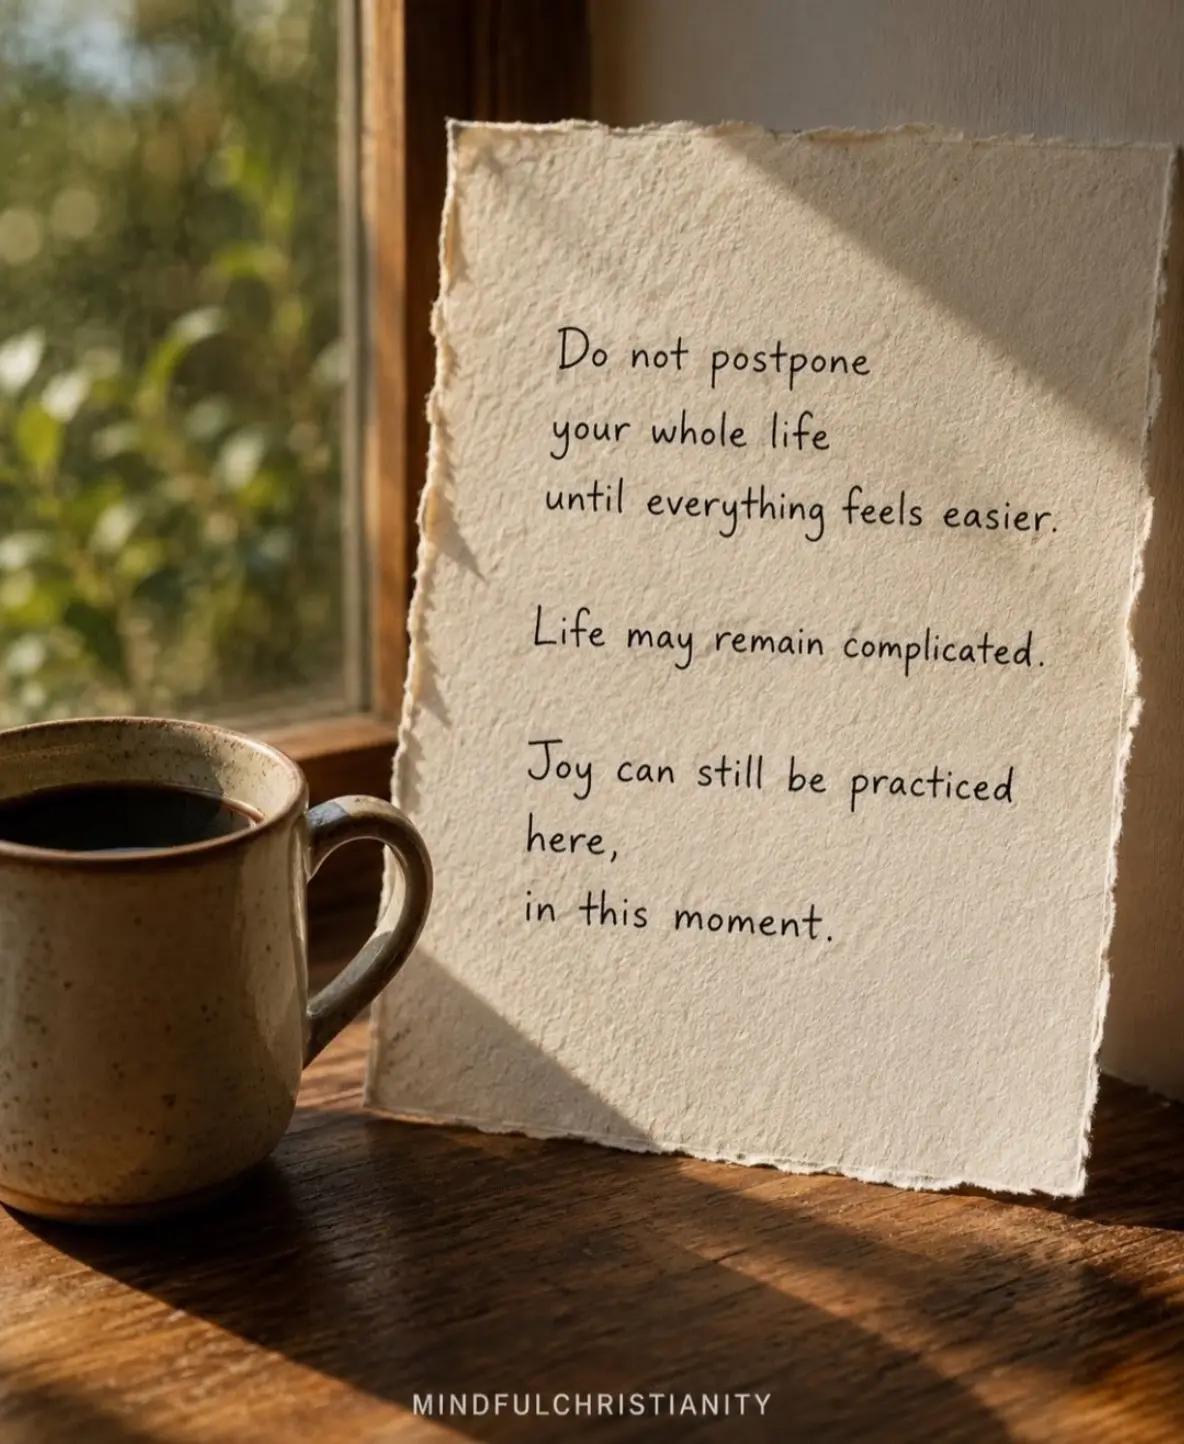 Do not postpone
your whole life
until everything feels easier.
Life may remain complicated.
Joy can still be practiced
here,
in this moment.
MINDFULCHRISTIANITY